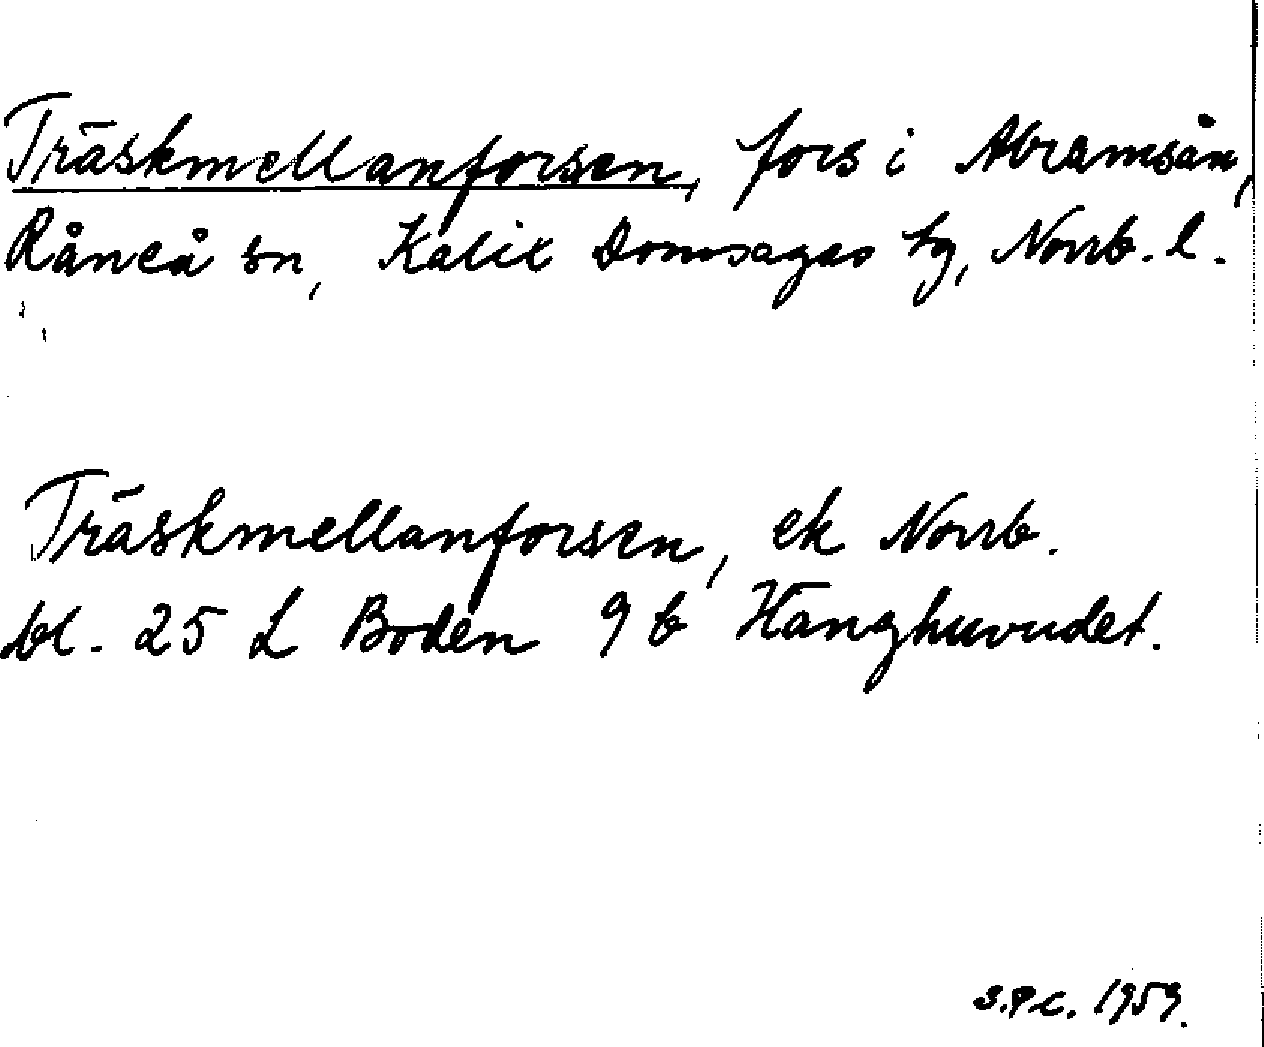 Träskmellanforsen, fors i Abramsån,
Råneå sn, Kalix Domsagas tg, Norrb. l.
Träskmellanforsen, ek Norrb.
bl. 25 L Boden 9 b Hanghuvudet.
S.P.C. 1959.